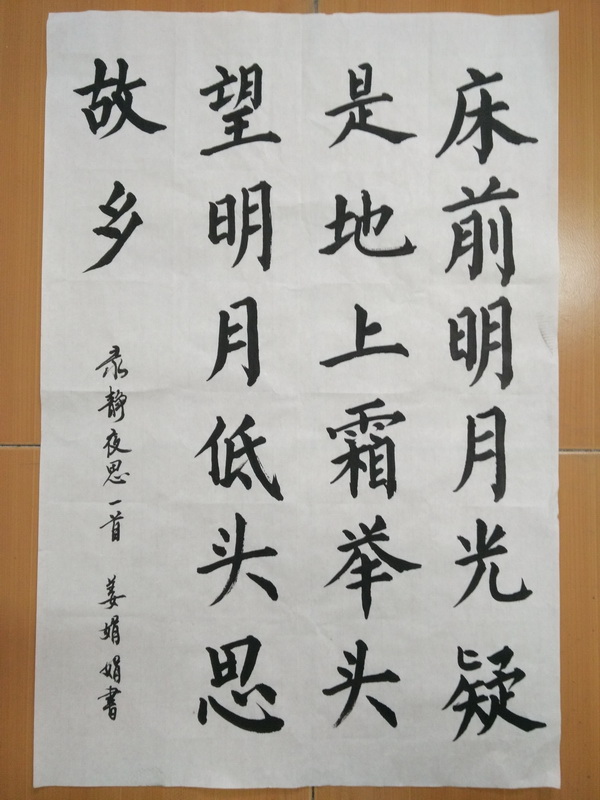 床前明月光疑
是地上霜举头
望明月低头思
故乡
录静夜思一首 姜娟娟書